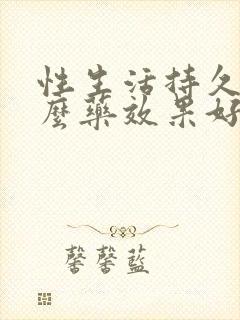 性生活持久
麼藥效果好
馨馨藍